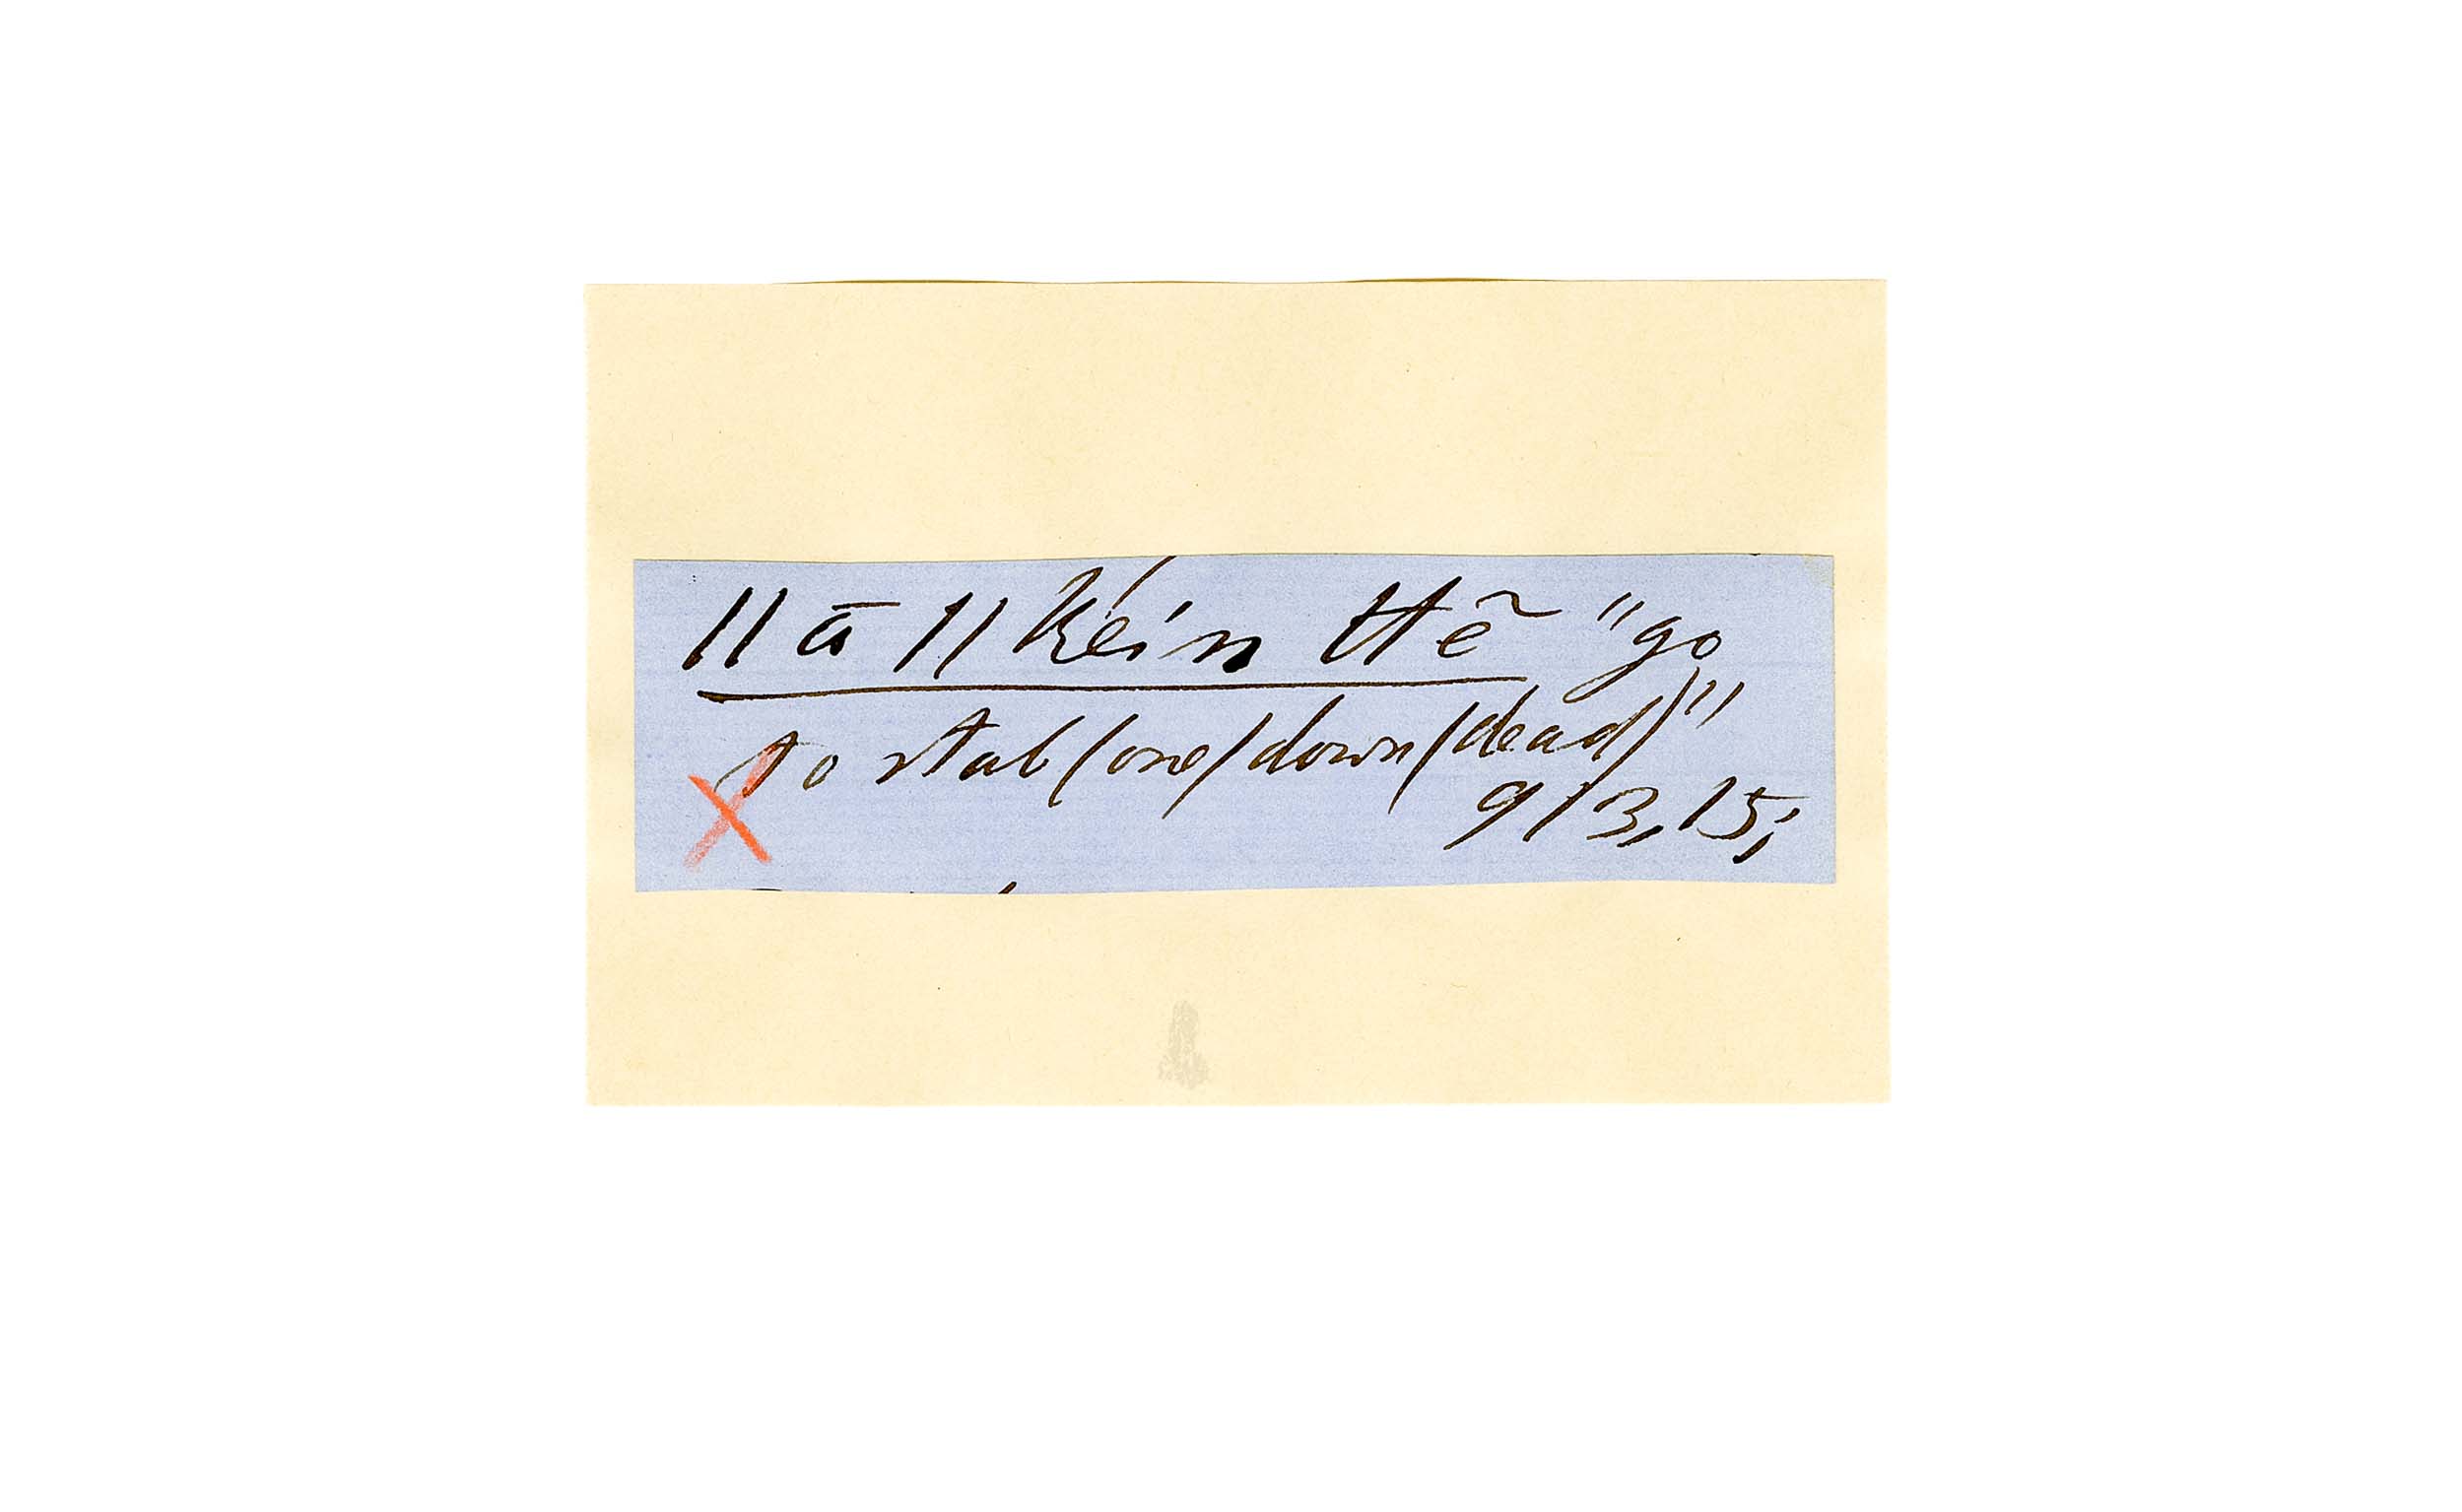 //ā//kẽín ttẽ "go
to stab (one) down (dead)"
9/3,15;